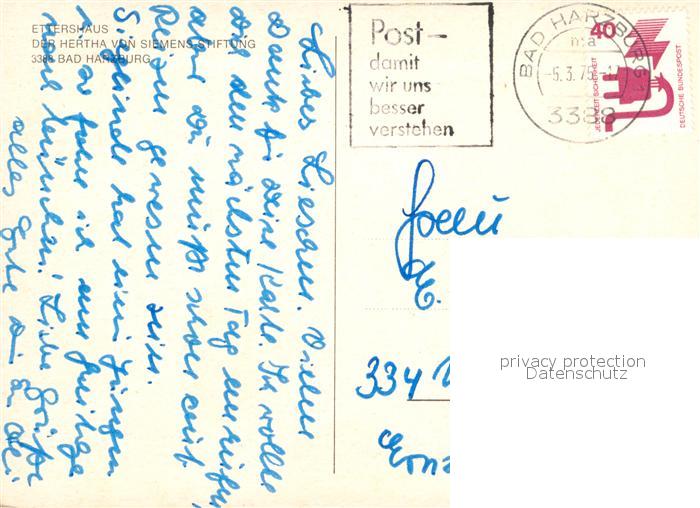 ETTERSHAUS
DER HERTHA VON SIEMENS-STIFTUNG
3388 BAD HARZBURG
Post-
damit
wir uns
besser
verstehen
BAD HARZBURG 1
ma
-5.3.75-1
3388
40
JEDERZEIT SICHERHEIT
DEUTSCHE BUNDESPOST
Liebes Lieschen. Vielen
Dank für Deine Karte. Ich wollte
Dich den nächsten Tag anrufen,
aber Du mußt schon auf
Reisen gewesen sein.
Sieglinde hat einen Jungen
fahre ich am
nach München! Liebe Grüße
alles Gute
Frau
334
privacy protection
Datenschutz